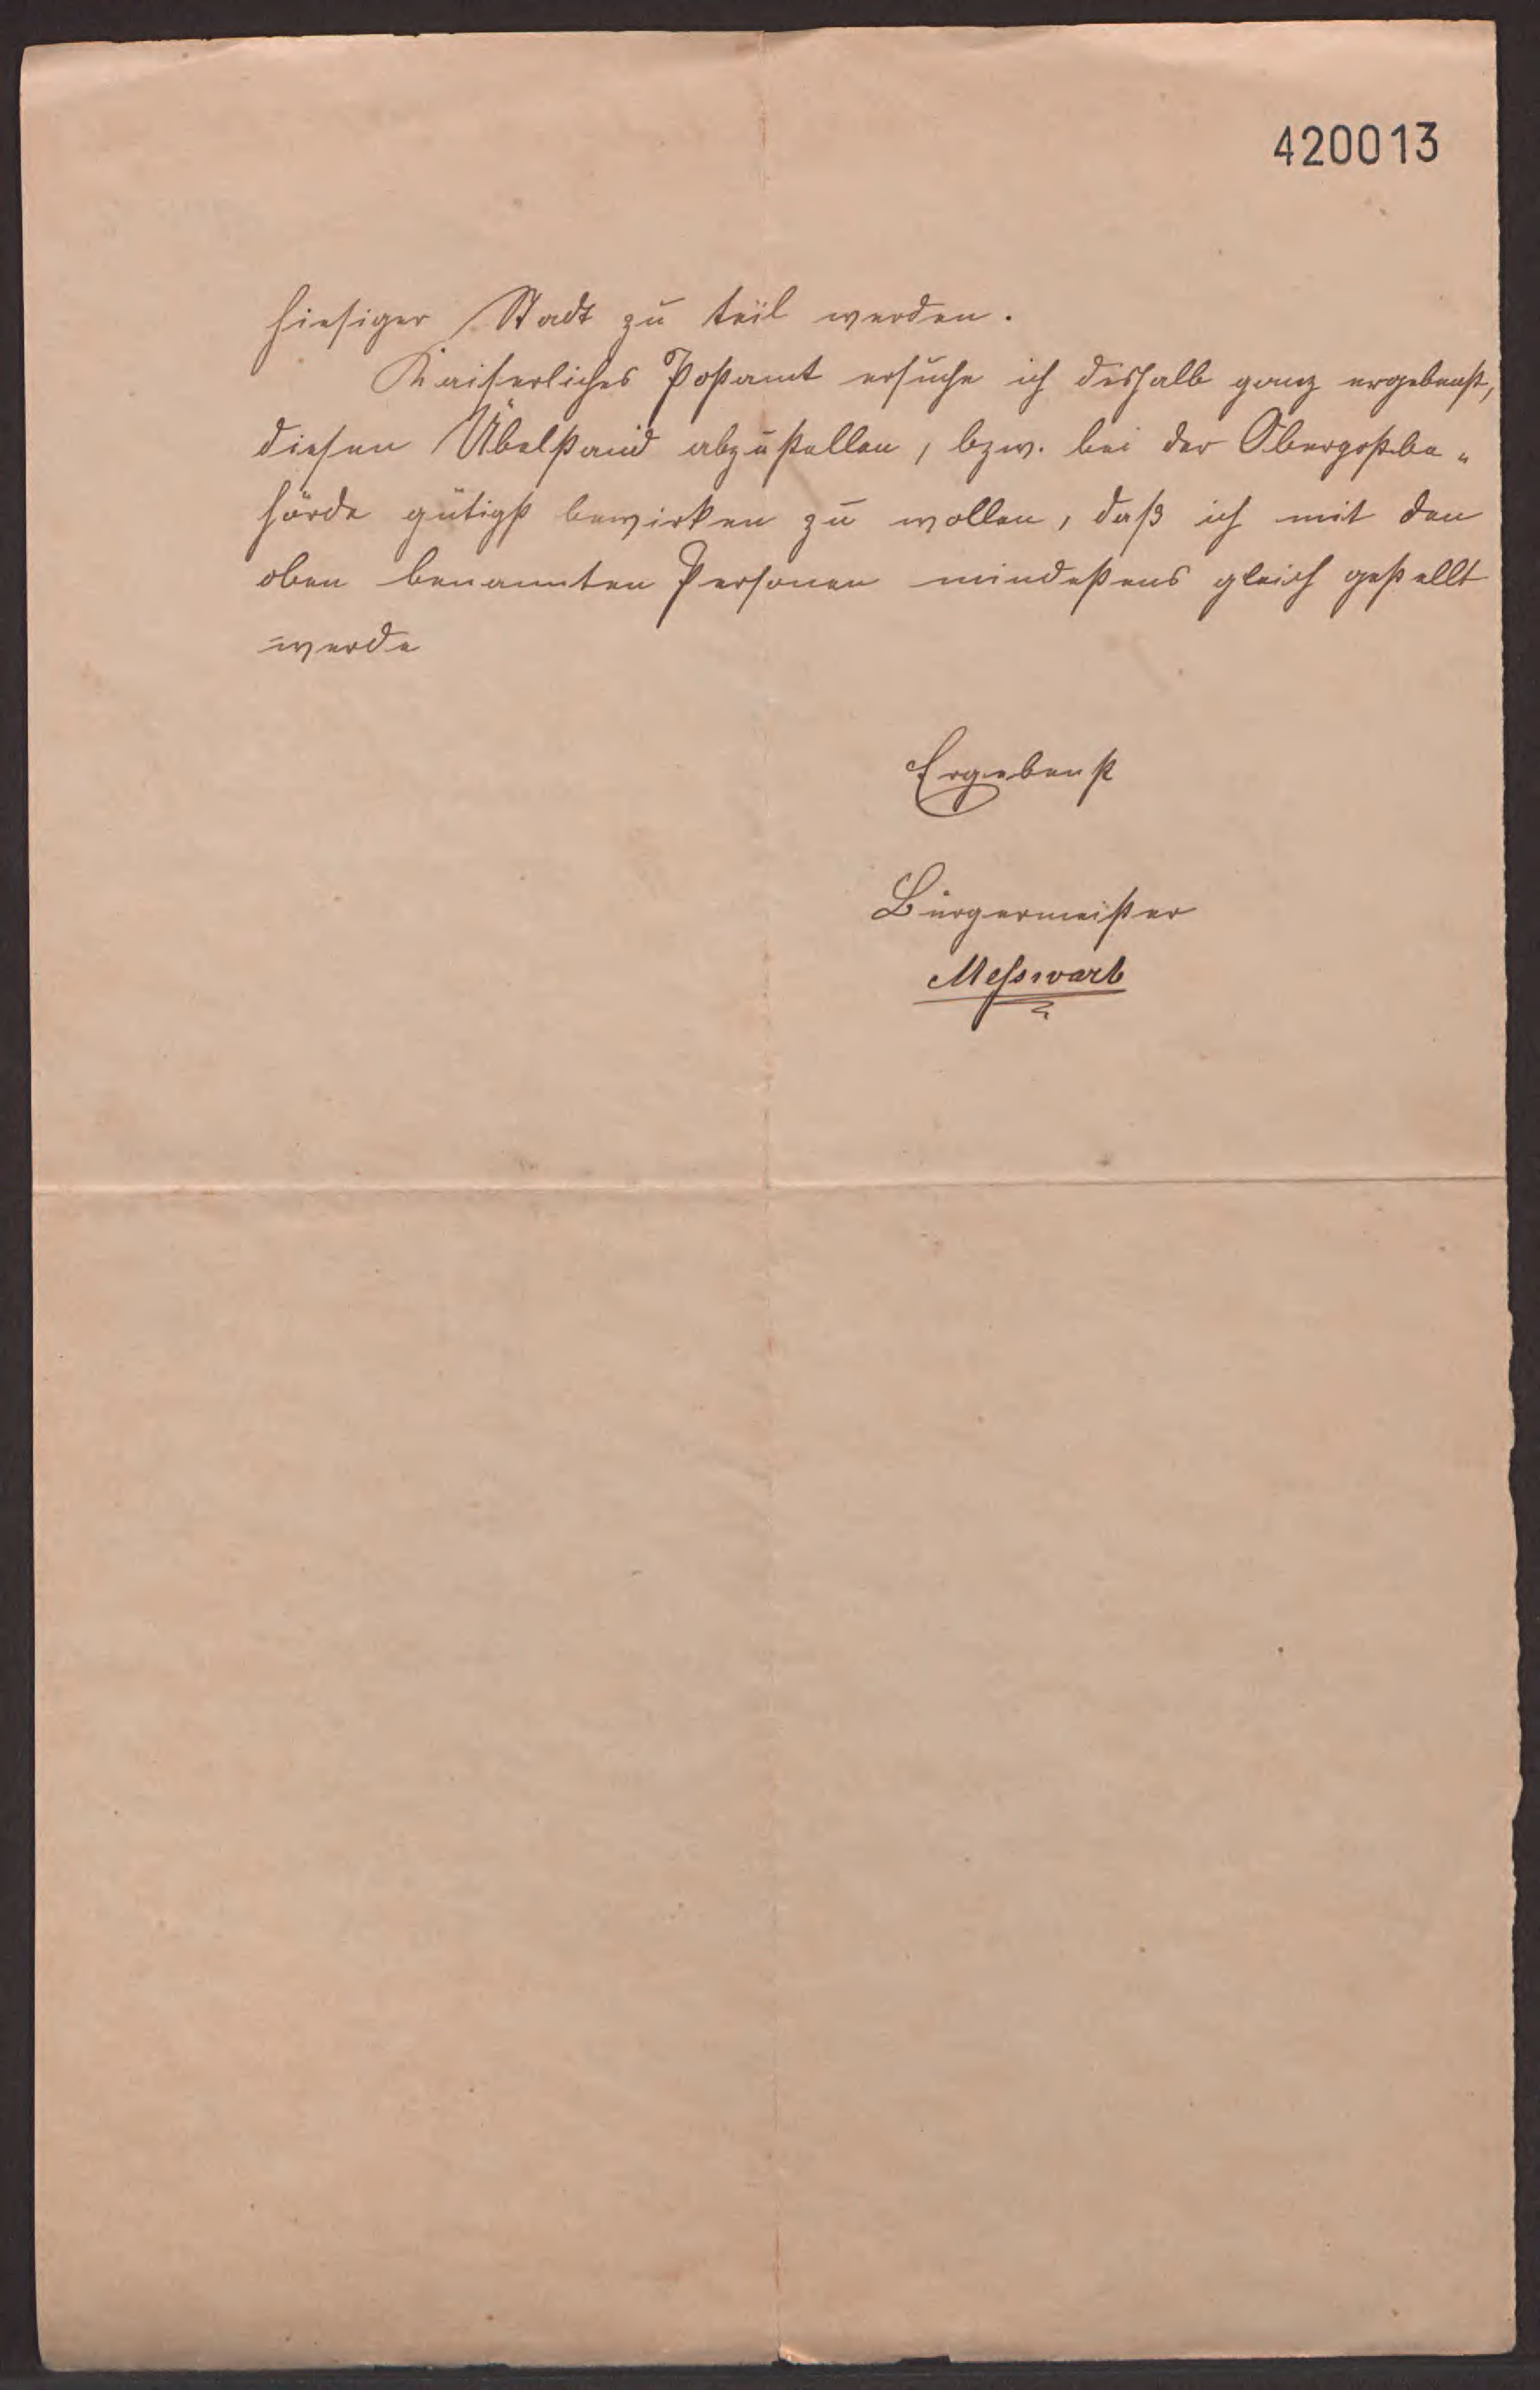 420013
hiesiger Stadt zu teil werden.
Kaiserliches Postamt ersuche ich deshalb ganz ergebenst,
diesen Übelstand abzustellen, bzw. bei der Oberpostbe„
hörde gütigst bewirken zu wollen, daß ich mit den
oben benannten Personen mindestens gleich gestellt
werde
Ergebenst
Bürgermeister
Messwarb